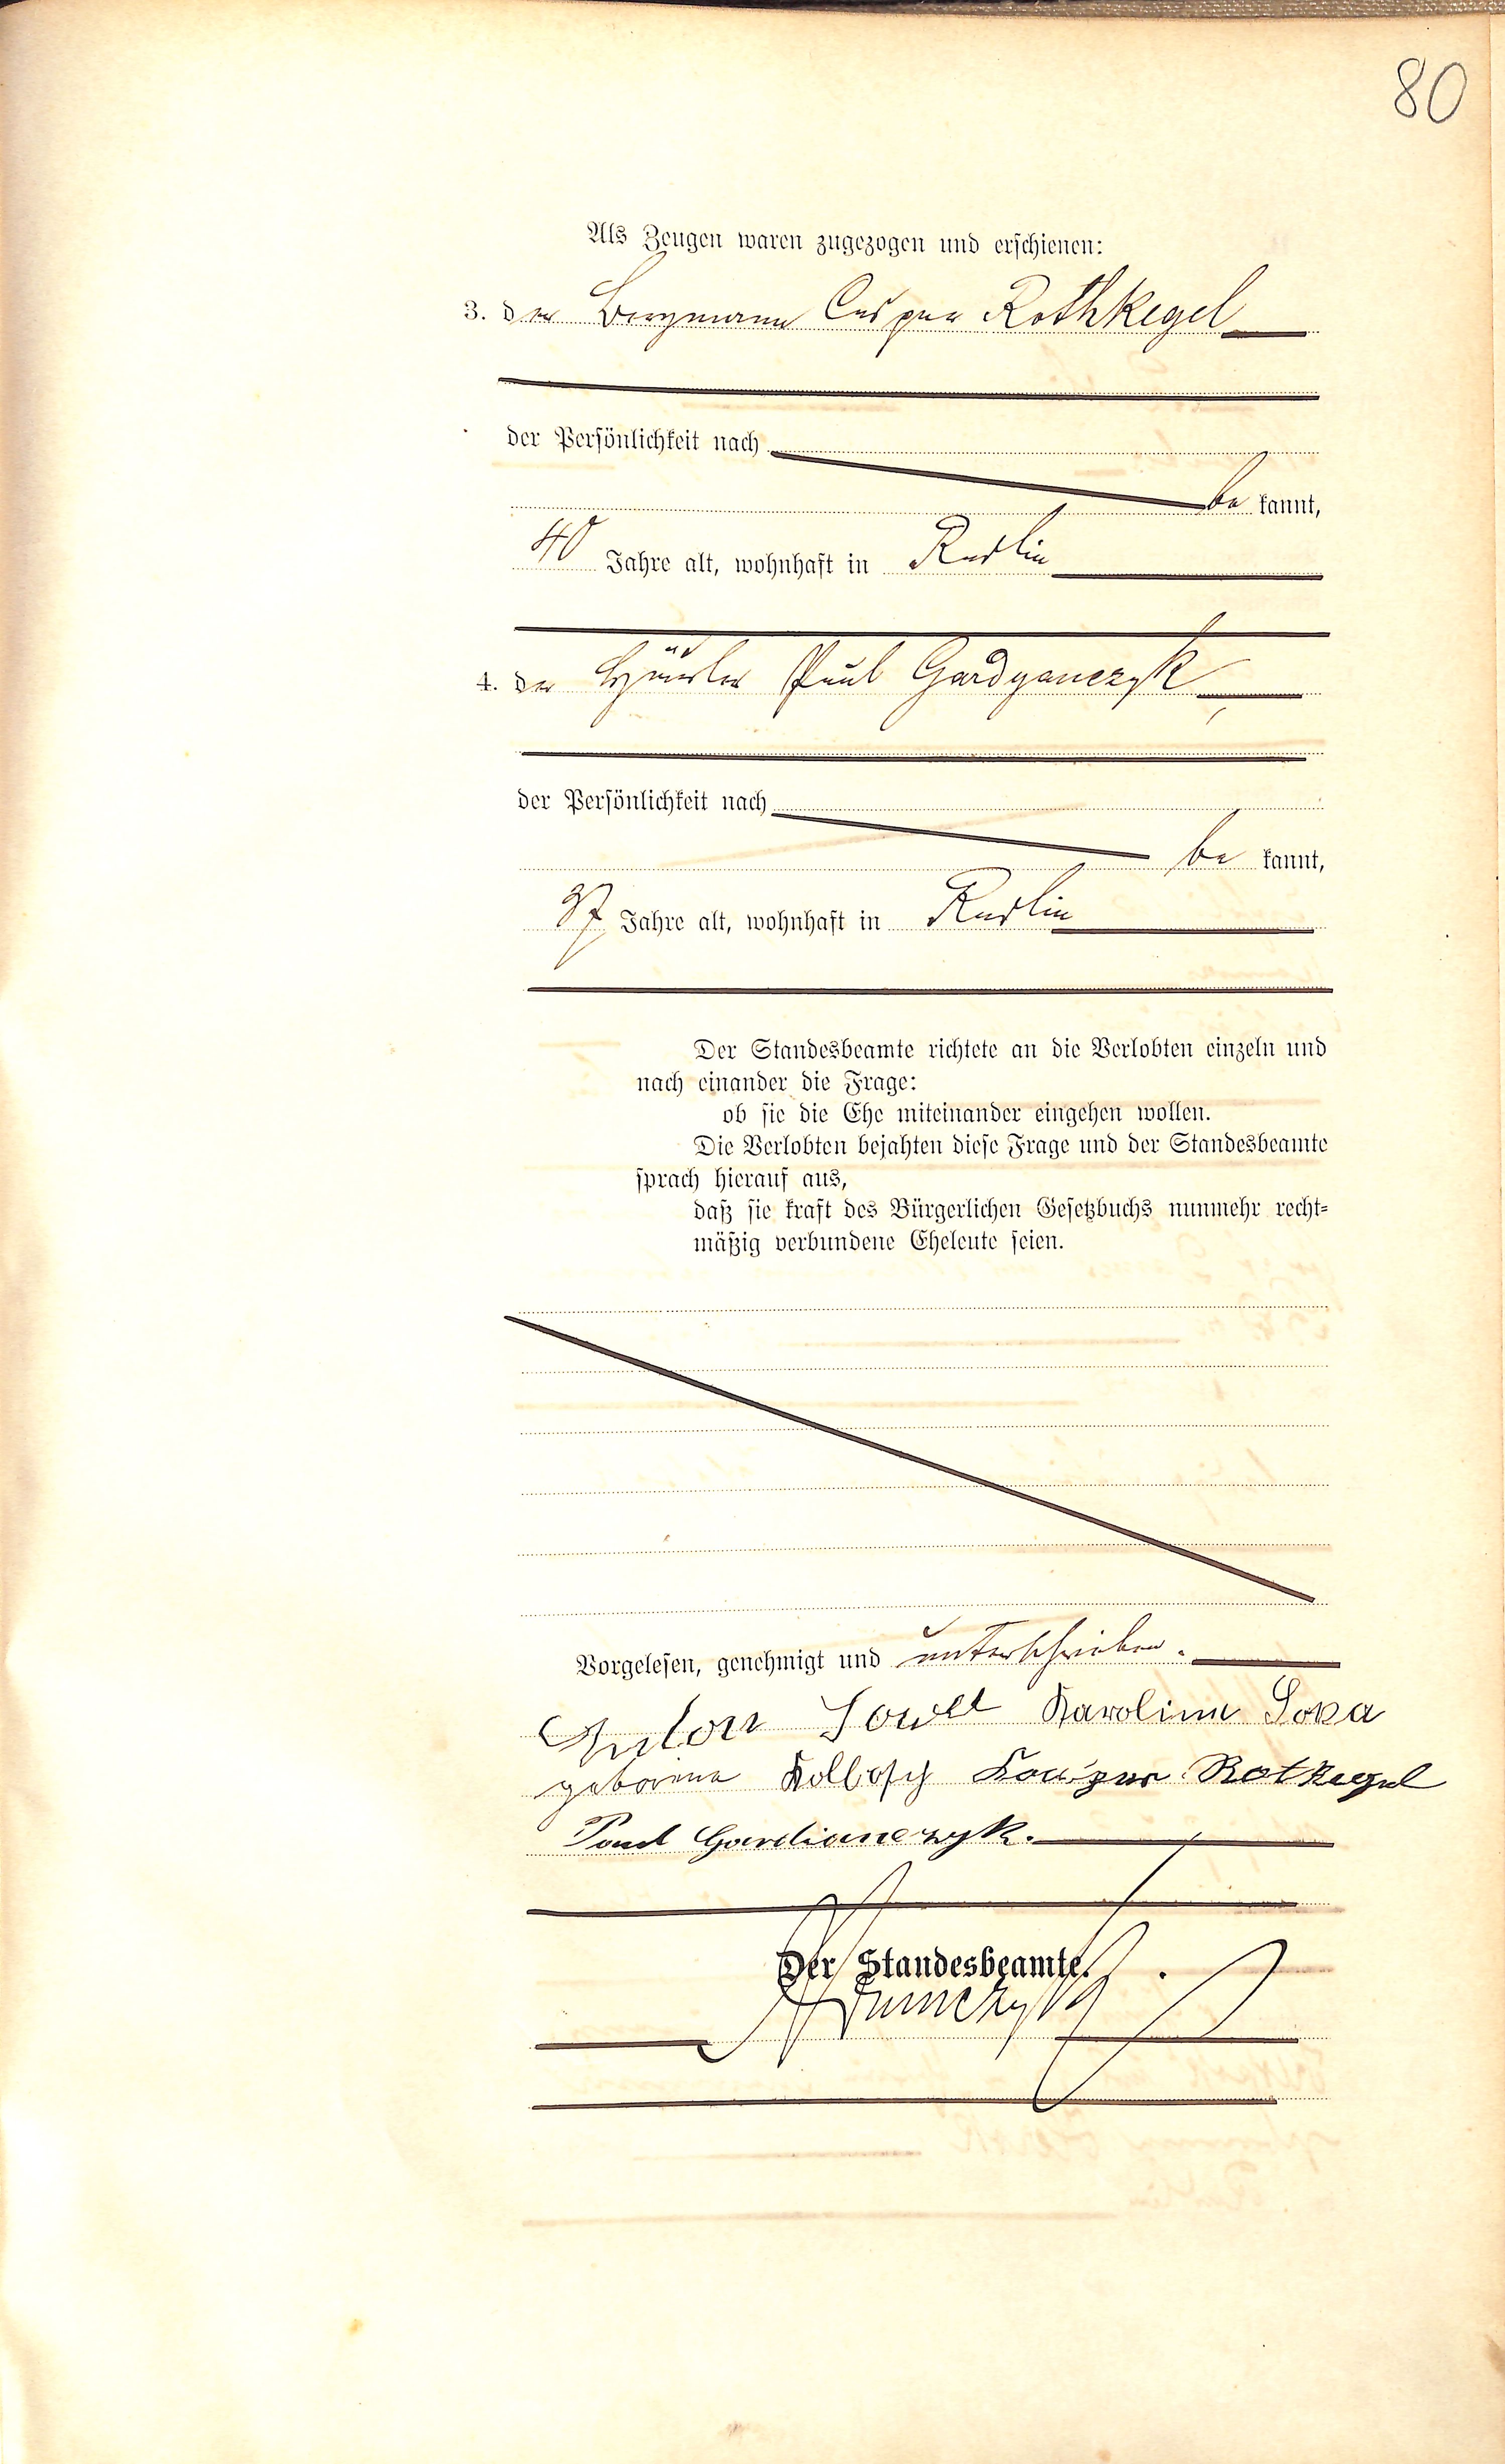 80
Als Zeugen waren zugezogen und erschienen:
3. der Bergmann Caspar Rothkegel
der Persönlichkeit nach
be kannt,
40 Jahre alt, wohnhaft in Radlin
4. der Häusler Paul Gardyanczyk
der Persönlichkeit nach
be kannt,
37 Jahre alt, wohnhaft in Radlin
Der Standesbeamte richtete an die Verlobten einzeln und
nach einander die Frage:
ob sie die Ehe miteinander eingehen wollen.
Die Verlobten bejahten diese Frage und der Standesbeamte
sprach hierauf aus,
daß sie kraft des Bürgerlichen Gesetzbuchs nunmehr recht-
mäßig verbundene Eheleute seien.
Vorgelesen, genehmigt und unterschrieben.
Anton Karolina
geborene Rotkegel
Paul Gardianczyk.
Der Standesbeamte.